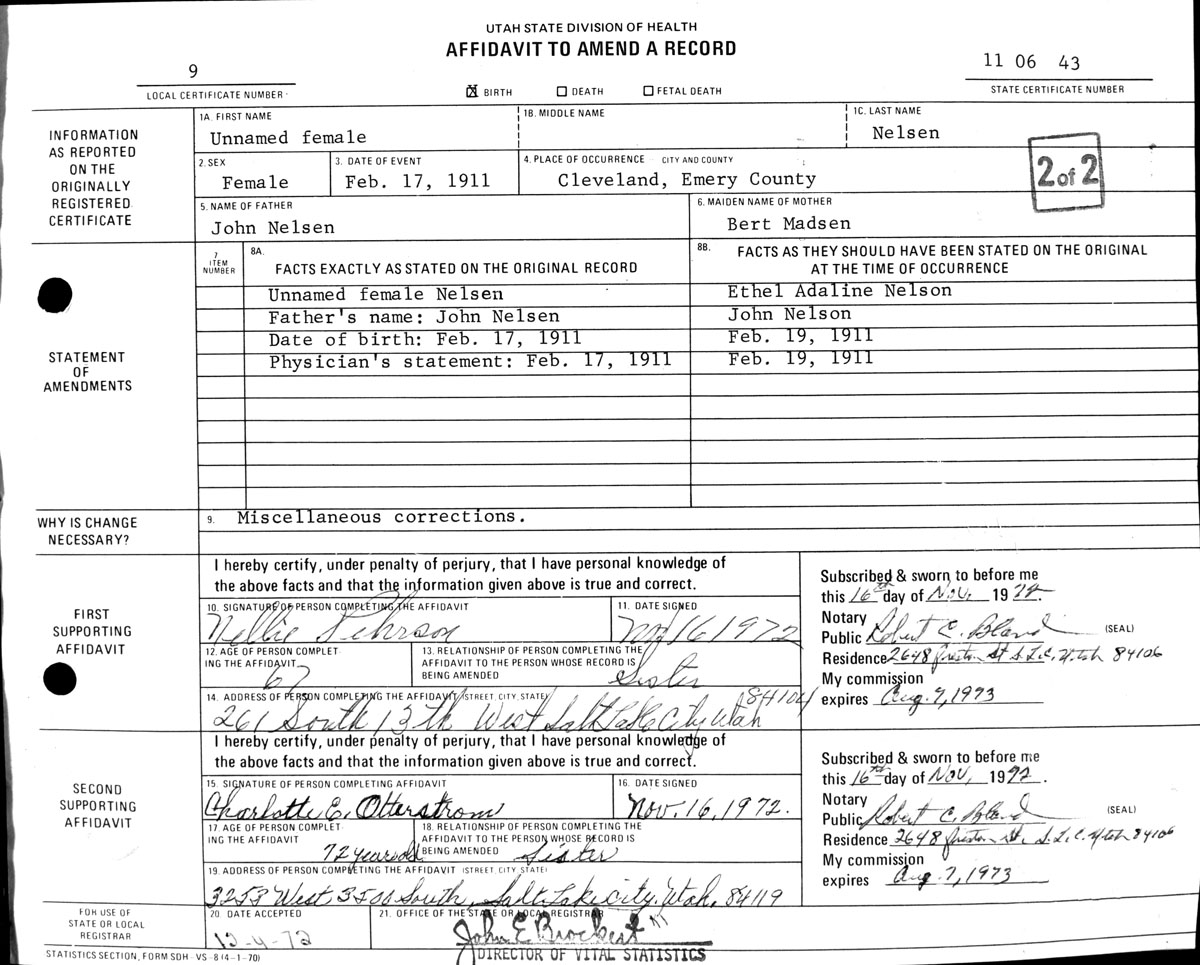 UTAH STATE DIVISION OF HEALTH
AFFIDAVIT TO AMEND A RECORD
9
LOCAL CERTIFICATE NUMBER
☒ BIRTH ☐ DEATH ☐ FETAL DEATH
11 06 43
STATE CERTIFICATE NUMBER
INFORMATION AS REPORTED ON THE ORIGINALLY REGISTERED CERTIFICATE
1A. FIRST NAME 1B. MIDDLE NAME 1C. LAST NAME
Unnamed female Nelsen
2. SEX 3. DATE OF EVENT 4. PLACE OF OCCURRENCE CITY AND COUNTY
Female Feb. 17, 1911 Cleveland, Emery County
2 of 2
5. NAME OF FATHER 6. MAIDEN NAME OF MOTHER
John Nelsen Bert Madsen
STATEMENT OF AMENDMENTS
7 ITEM NUMBER
8A. FACTS EXACTLY AS STATED ON THE ORIGINAL RECORD
8B. FACTS AS THEY SHOULD HAVE BEEN STATED ON THE ORIGINAL AT THE TIME OF OCCURRENCE
Unnamed female Nelsen Ethel Adaline Nelson
Father's name: John Nelsen John Nelson
Date of birth: Feb. 17, 1911 Feb. 19, 1911
Physician's statement: Feb. 17, 1911 Feb. 19, 1911
WHY IS CHANGE NECESSARY?
9. Miscellaneous corrections.
FIRST SUPPORTING AFFIDAVIT
I hereby certify, under penalty of perjury, that I have personal knowledge of
the above facts and that the information given above is true and correct.
10. SIGNATURE OF PERSON COMPLETING THE AFFIDAVIT 11. DATE SIGNED
Nellie Pehrson 16 1972
12. AGE OF PERSON COMPLETING THE AFFIDAVIT
67
13. RELATIONSHIP OF PERSON COMPLETING THE AFFIDAVIT TO THE PERSON WHOSE RECORD IS BEING AMENDED
Sister
14. ADDRESS OF PERSON COMPLETING THE AFFIDAVIT (STREET, CITY, STATE)
261 South 13th West Salt Lake City Utah 84104
Subscribed & sworn to before me
this 16th day of Nov. 1972
Notary
Public Robert C. Bland (SEAL)
Residence 2648 St S.L.C. Utah 84106
My commission
expires Aug. 7, 1973
SECOND SUPPORTING AFFIDAVIT
I hereby certify, under penalty of perjury, that I have personal knowledge of
the above facts and that the information given above is true and correct.
15. SIGNATURE OF PERSON COMPLETING AFFIDAVIT 16. DATE SIGNED
Charlotte E. Otterstrom Nov. 16, 1972.
17. AGE OF PERSON COMPLETING THE AFFIDAVIT
72 years old
18. RELATIONSHIP OF PERSON COMPLETING THE AFFIDAVIT TO THE PERSON WHOSE RECORD IS BEING AMENDED
Sister
19. ADDRESS OF PERSON COMPLETING THE AFFIDAVIT (STREET, CITY, STATE)
3253 West 3500 South, Salt Lake City, Utah, 84119
Subscribed & sworn to before me
this 16th day of Nov, 1972.
Notary
Public Robert C. Bland (SEAL)
Residence 2648 St, S.L.C. Utah 84106
My commission
expires Aug. 7, 1973
FOR USE OF STATE OR LOCAL REGISTRAR
20. DATE ACCEPTED 21. OFFICE OF THE STATE OR LOCAL REGISTRAR
12-4-72 John E Brockert
DIRECTOR OF VITAL STATISTICS
STATISTICS SECTION, FORM SDH - VS - 8 (4-1-70)